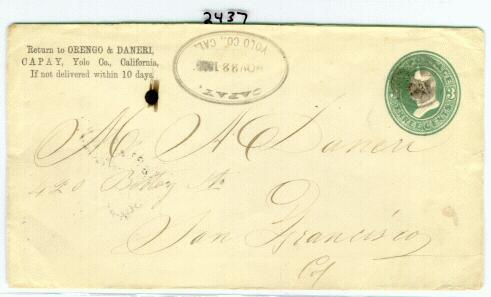 2437
Return to ORENGO & DANERI,
CAPAY, Yolo Co., California,
If not delivered within 10 days.
CAPAY,
NOV 22
YOLO CO., CAL.
THREE CENTS
M. A Daneri
420 Battery St
San Francisco
Cal